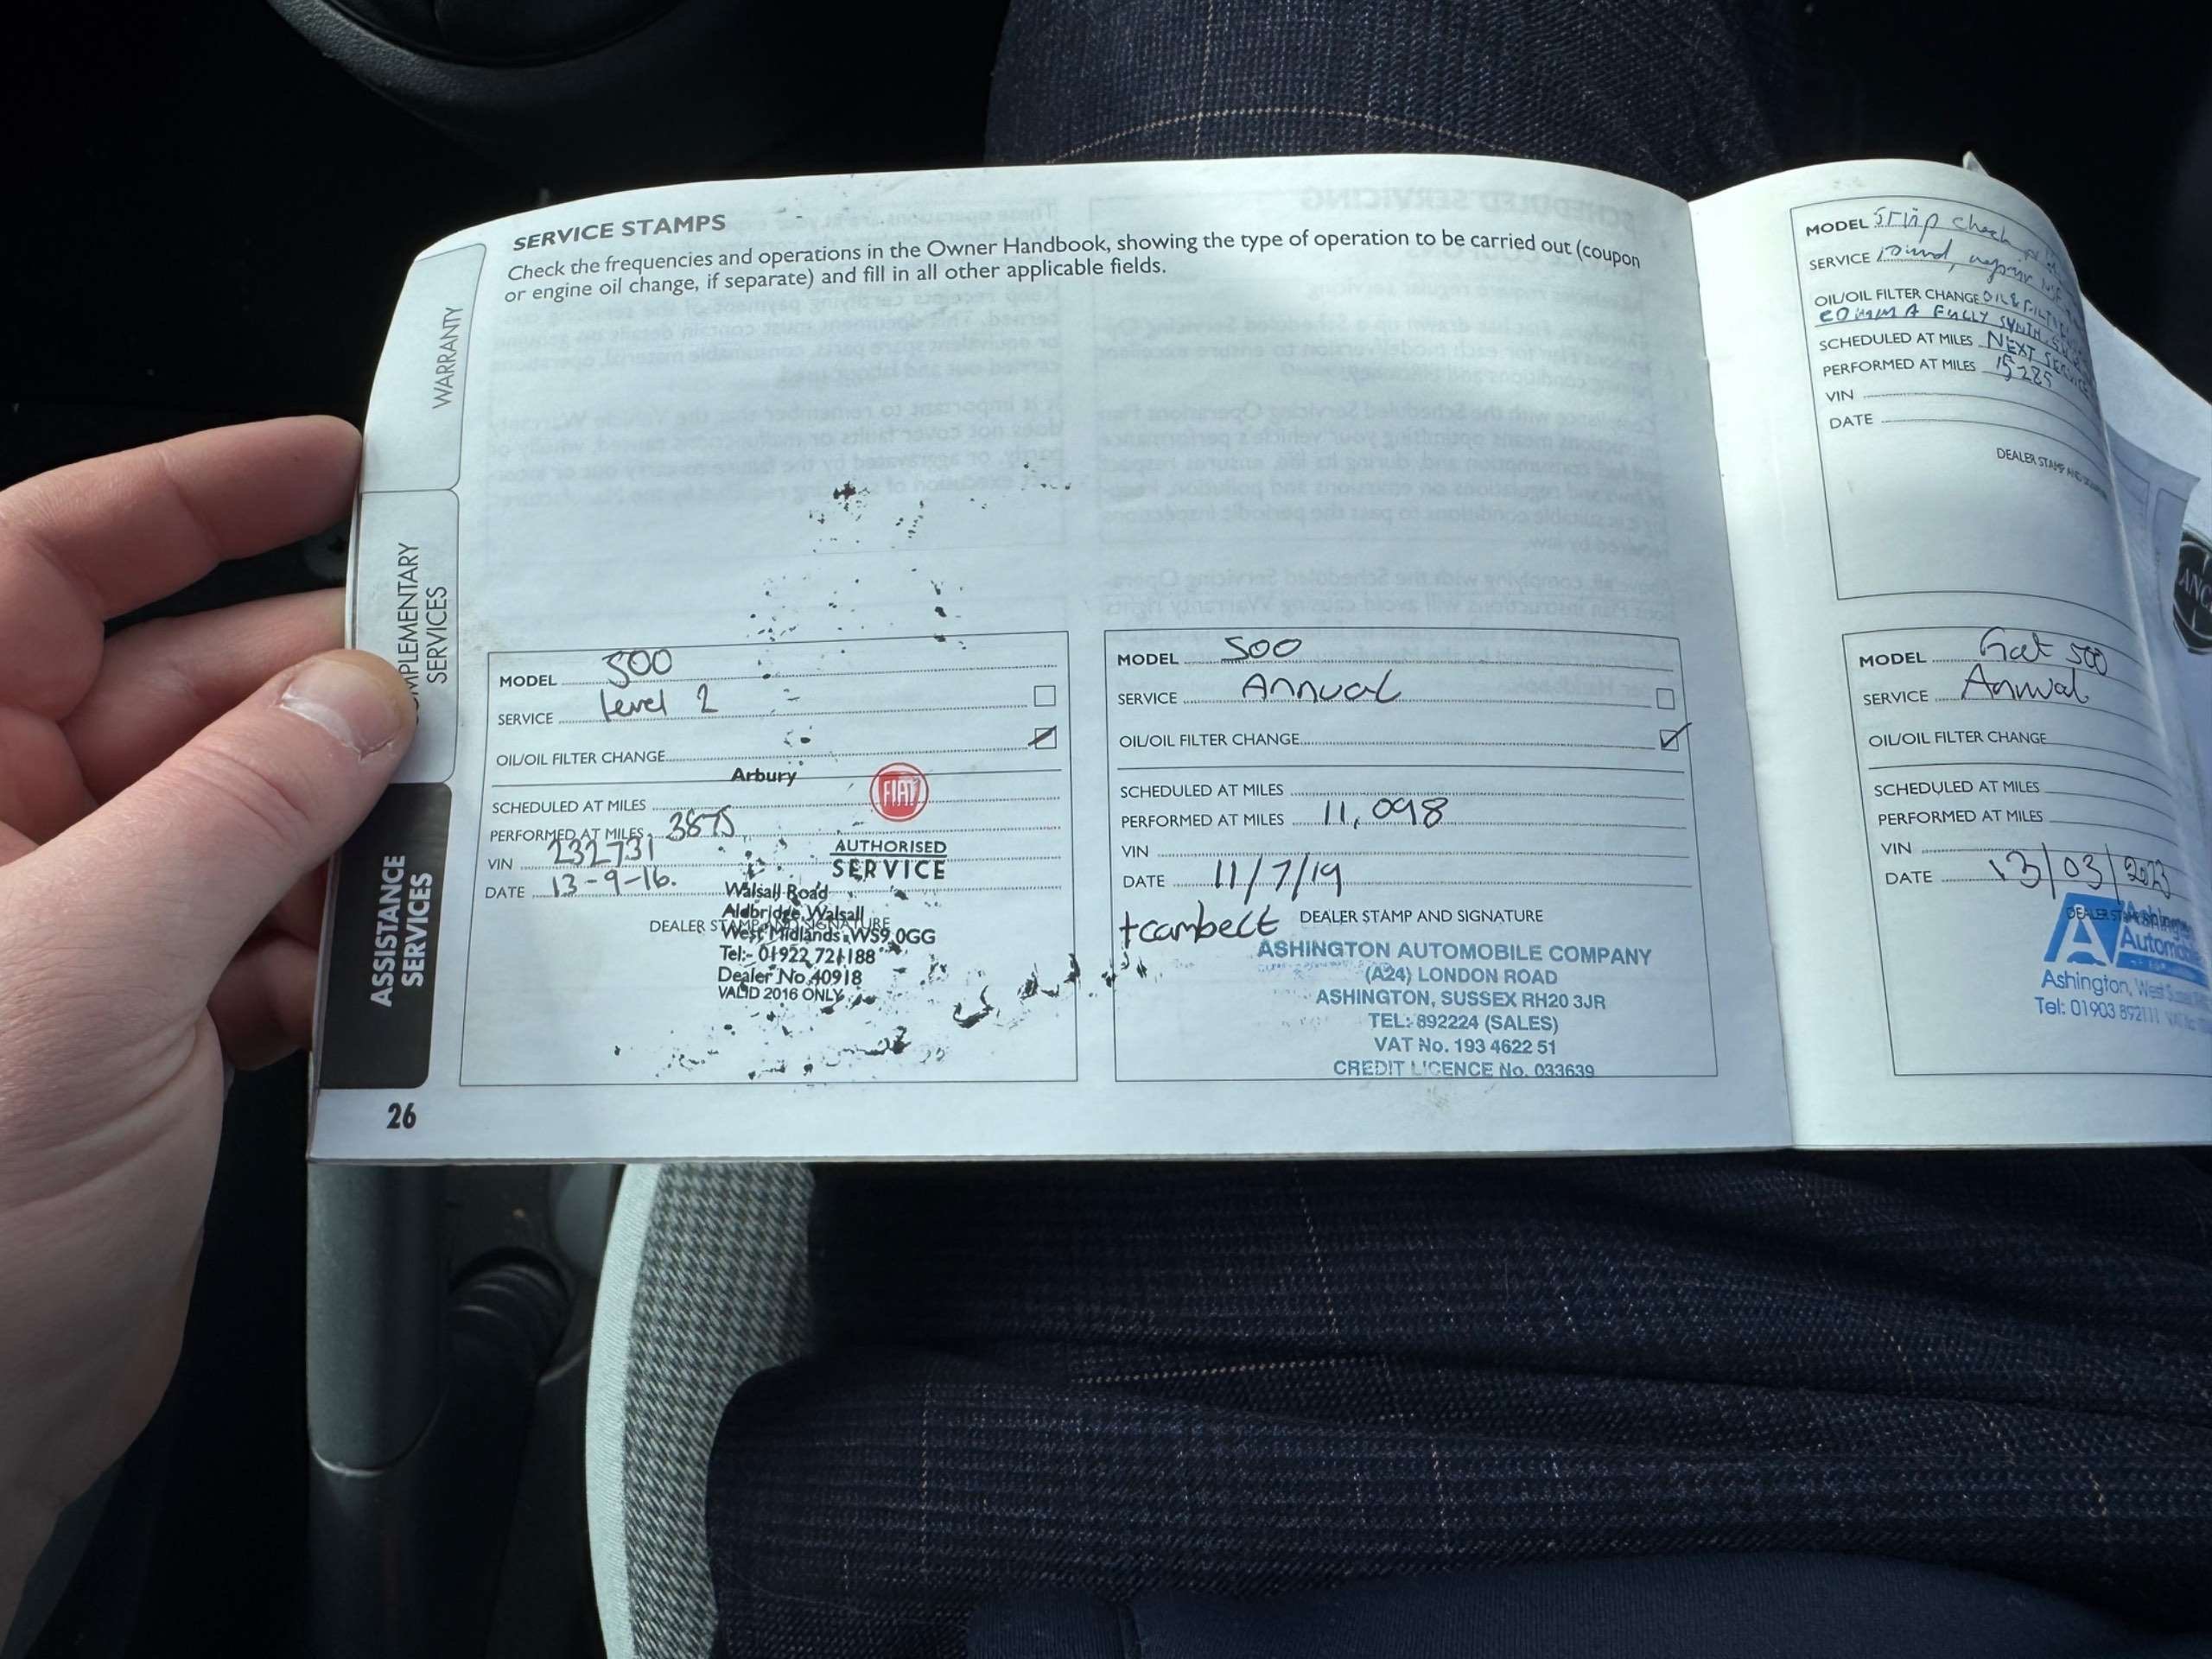 SERVICE STAMPS
Check the frequencies and operations in the Owner Handbook, showing the type of operation to be carried out (coupon
or engine oil change, if separate) and fill in all other applicable fields.
WARRANTY
COMPLEMENTARY
SERVICES
ASSISTANCE
SERVICES
26
MODEL 500
SERVICE Level 2
OIL/OIL FILTER CHANGE
Arbury
FIAT
SCHEDULED AT MILES
PERFORMED AT MILES 3875
VIN 232731
AUTHORISED
SERVICE
DATE 13-9-16.
Walsall Road
Aldbridge, Walsall
DEALER STAMP AND SIGNATURE
West Midlands WS9 0GG
Tel:- 01922 721188
Dealer No 40918
VALID 2016 ONLY
MODEL 500
SERVICE Annual
OIL/OIL FILTER CHANGE
SCHEDULED AT MILES
PERFORMED AT MILES 11,098
VIN
DATE 11/7/19
+cambelt DEALER STAMP AND SIGNATURE
ASHINGTON AUTOMOBILE COMPANY
(A24) LONDON ROAD
ASHINGTON, SUSSEX RH20 3JR
TEL: 892224 (SALES)
VAT No. 193 4622 51
CREDIT LICENCE No. 033639
MODEL Strip check
SERVICE round,
OIL/OIL FILTER CHANGE OIL & FILTER
COMMA FULLY SYNTH
SCHEDULED AT MILES NEXT SERVICE
PERFORMED AT MILES 15285
VIN
DATE
DEALER STAMP AND
MODEL Fiat 500
SERVICE Annual
OIL/OIL FILTER CHANGE
SCHEDULED AT MILES
PERFORMED AT MILES
VIN
DATE 13/03/2023
DEALER
A
Ashington
Ashington, West
Tel: 01903 892111